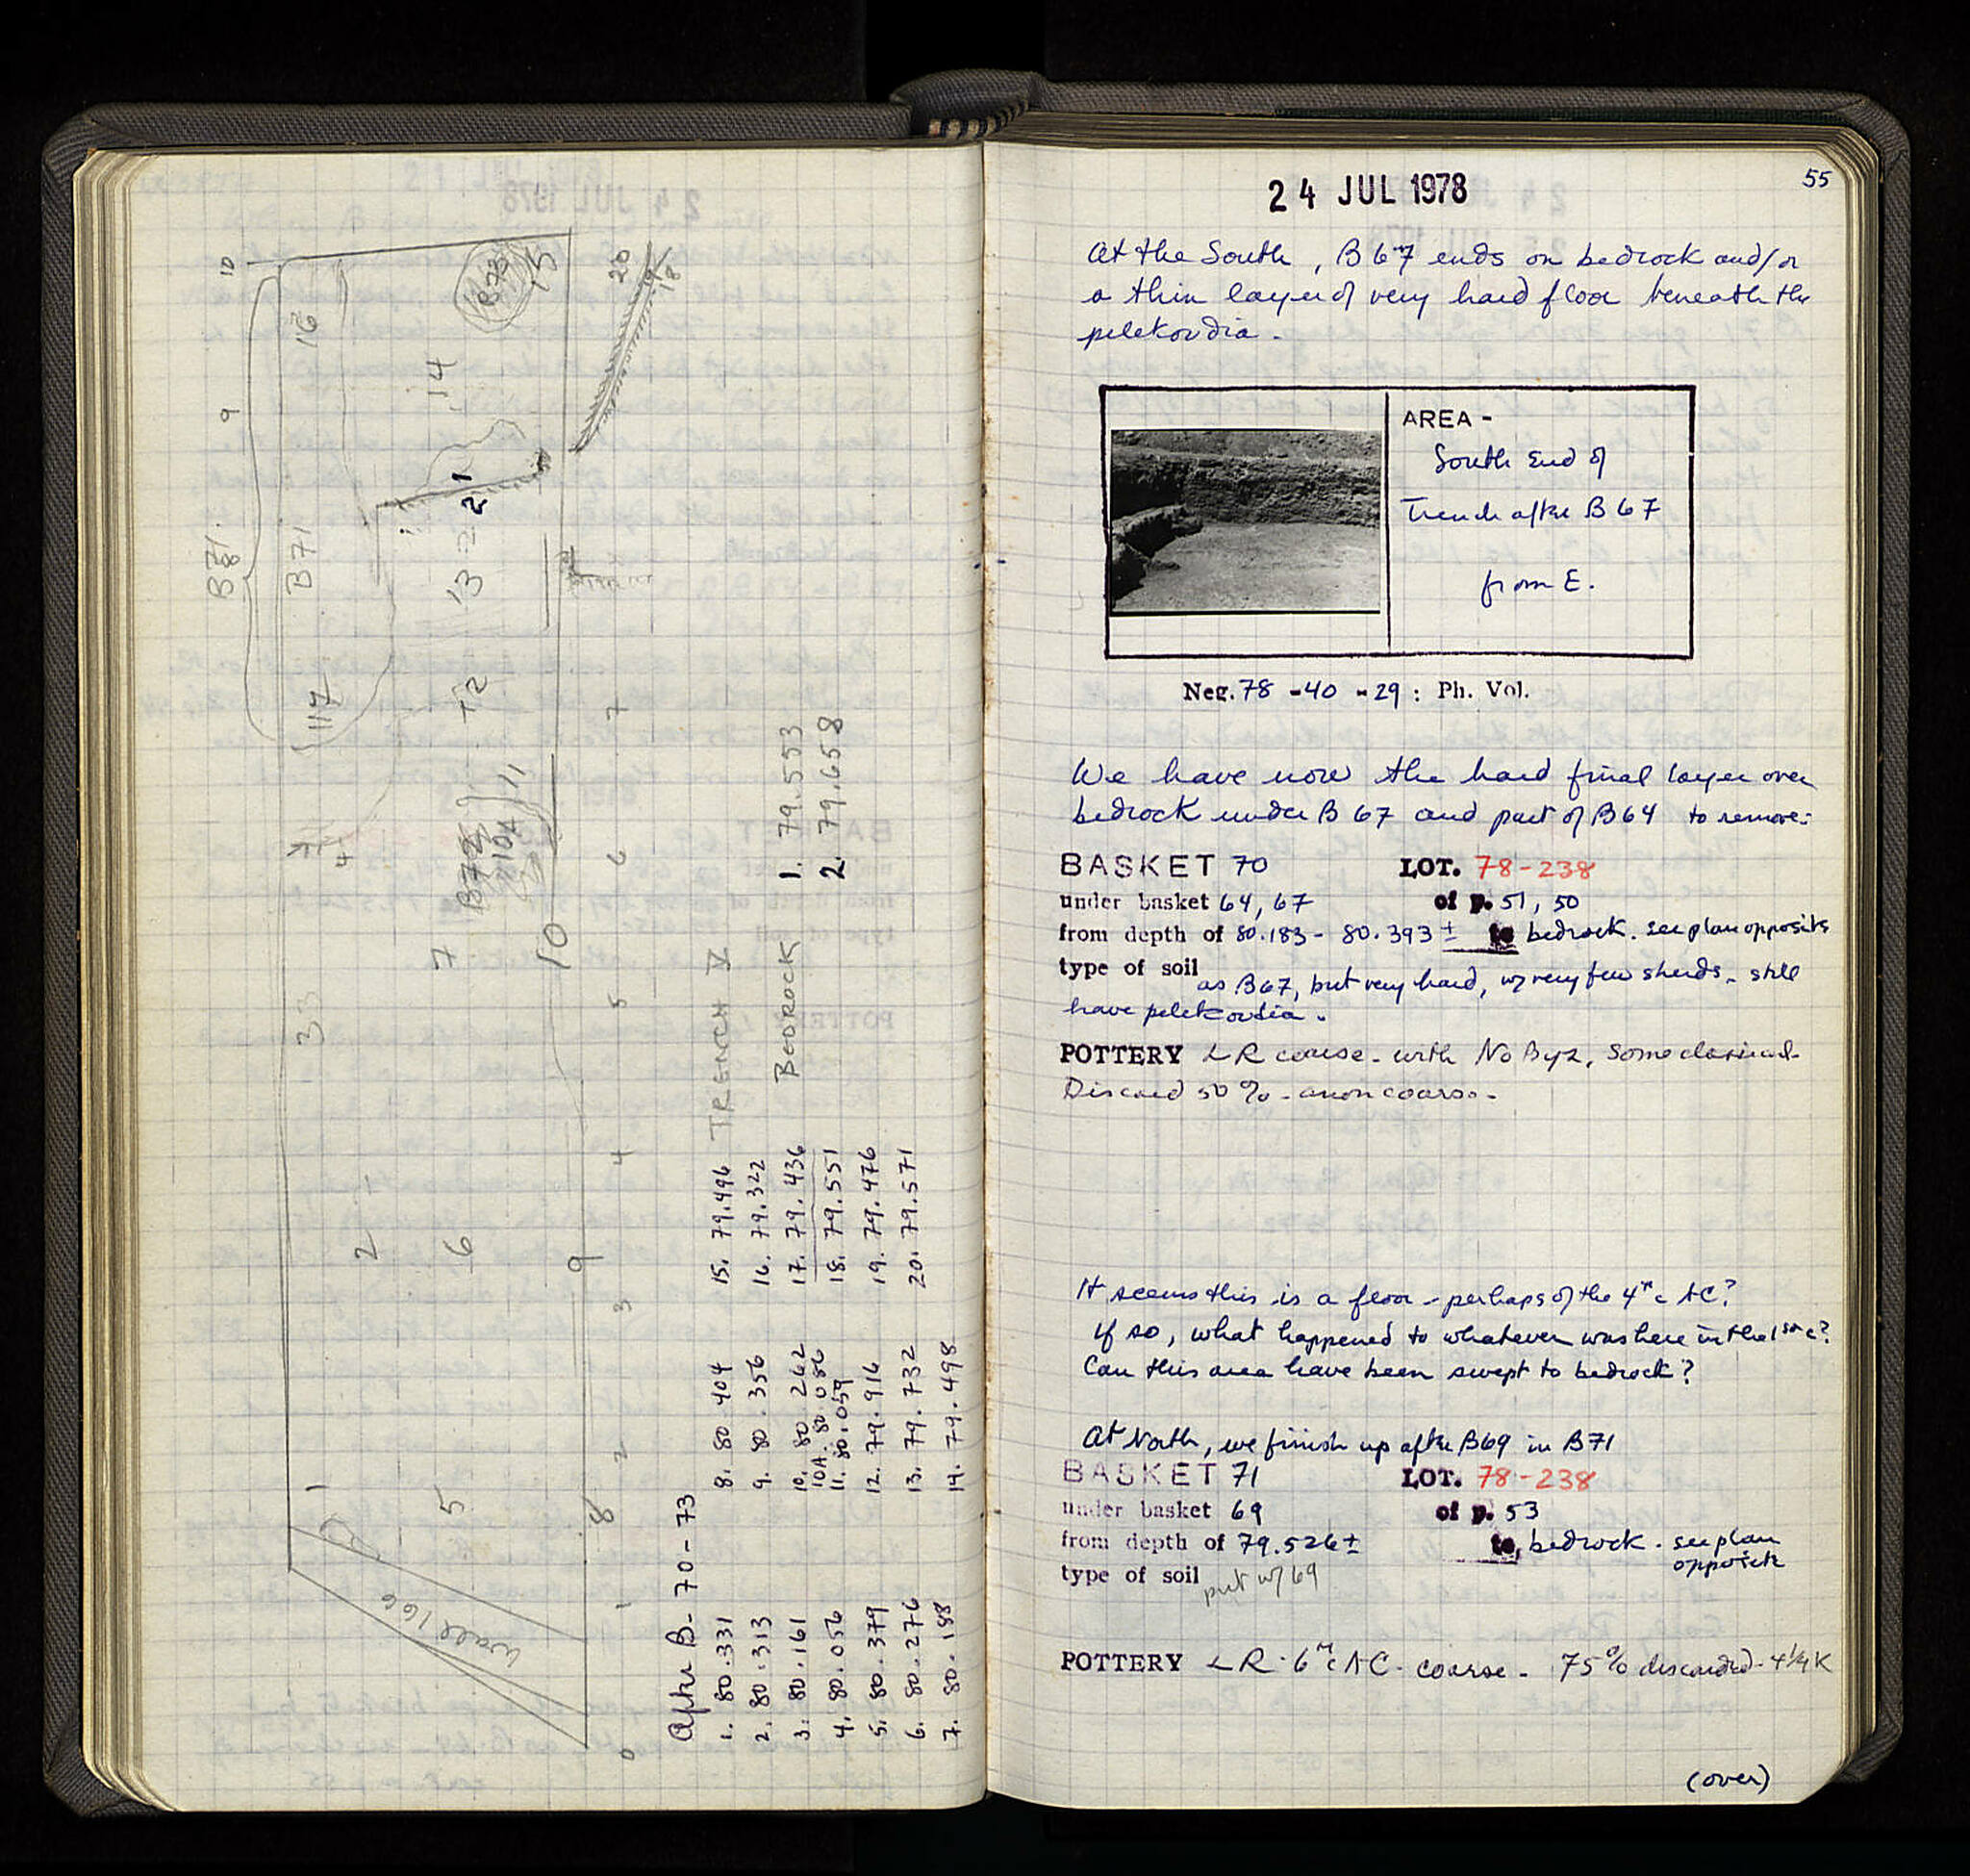 10
9
B71
B71
16
B73
15
14
1
2
13
20
19
18
117
12
7
11
10A
4
6
33
7
10
5
4
2
6
9
3
2
1
5
8
1
0
Wall 166
After B- 70-73
1. 80.331
2. 80.313
3. 80.161
4. 80.056
5. 80.379
6. 80.276
7. 80.188
8. 80 404
9. 80.356
10. 80 262
10A. 80.086
11. 80.059
12. 79.916
13. 79.732
14. 79.498
15. 79.496
16. 79.322
17. 79.436
18. 79.551
19. 79.476
20. 79.571
TRENCH V
BEDROCK
1. 79.553
2. 79.658
55
24 JUL 1978
At the South, B 67 ends on bedrock and/or
a thin layer of very hard floor beneath the
pelekoudia.
AREA -
South End of
Trench after B 67
from E.
Neg. 78 -40 -29 : Ph. Vol.
We have now the hard final layer over
bedrock under B 67 and part of B64 to remove:
BASKET 70 LOT. 78-238
under basket 64, 67 of p. 51, 50
from depth of 80.183 - 80.393 ± to bedrock. see plan opposite
type of soil as B67, but very hard, w/ very few sherds - still
have pelekoudia.
POTTERY LR coarse - with No Byz, some classical.
Discard 50% - anon coarse -
It seems this is a floor - perhaps of the 4th c AC?
If so, what happened to whatever was here in the 1st c?
Can this area have been swept to bedrock?
At North, we finish up after B69 in B71
BASKET 71 LOT. 78-238
under basket 69 of p. 53
from depth of 79.526± to bedrock. see plan
opposite
type of soil put w/ 69
POTTERY LR - 6th c AC - coarse - 75% discarded - 4 1/4 K
(over)